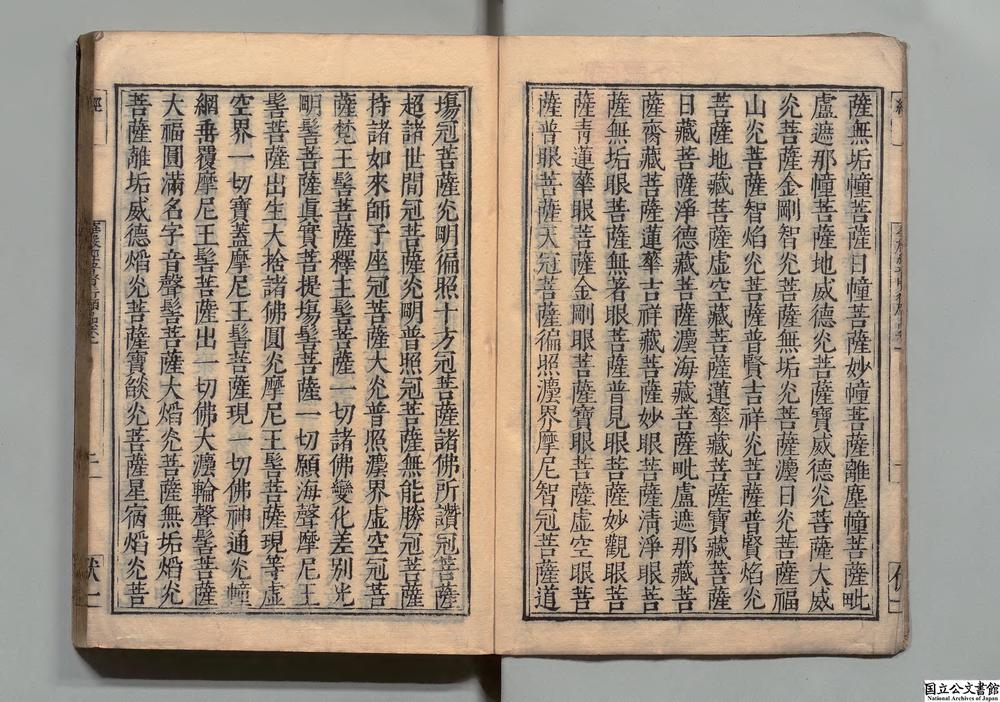 薩無垢幢菩薩日幢菩薩妙幢菩薩離塵幢菩薩毗
盧遮那幢菩薩地威德炎菩薩寶威德炎菩薩大威
炎菩薩金剛智炎菩薩無垢炎菩薩灋日炎菩薩福
山炎菩薩智焰炎菩薩普賢吉祥炎菩薩普賢焰炎
菩薩地藏菩薩虛空藏菩薩蓮華藏菩薩寶藏菩薩
日藏菩薩淨德藏菩薩灋海藏菩薩毗盧遮那藏菩
薩齎藏菩薩蓮華吉祥藏菩薩妙眼菩薩清淨眼菩
薩無垢眼菩薩無著眼菩薩普見眼菩薩妙觀眼菩
薩青蓮華眼菩薩金剛眼菩薩寶眼菩薩虛空眼菩
薩普眼菩薩天冠菩薩徧照灋界摩尼智冠菩薩道
場冠菩薩炎明徧照十方冠菩薩諸佛所讚冠菩薩
超諸世間冠菩薩炎明普照冠菩薩無能勝冠菩薩
持諸如來師子座冠菩薩大炎普照灋界虛空冠菩
薩梵王髻菩薩釋主髻菩薩一切諸佛變化差別光
明髻菩薩眞實菩提場髻菩薩一切願海聲摩尼王
髻菩薩出生大捨諸佛圓炎摩尼王髻菩薩現等虛
空界一切寶蓋摩尼王髻菩薩現一切佛神通炎幢
網垂覆摩尼王髻菩薩出一切佛大灋輪聲髻菩薩
大福圓滿名字音聲髻菩薩大熖炎菩薩無垢熖炎
菩薩離垢威德熖炎菩薩寶燄炎菩薩星宿熖炎菩
經
二
伏一
国立公文書館
National Archives of Japan